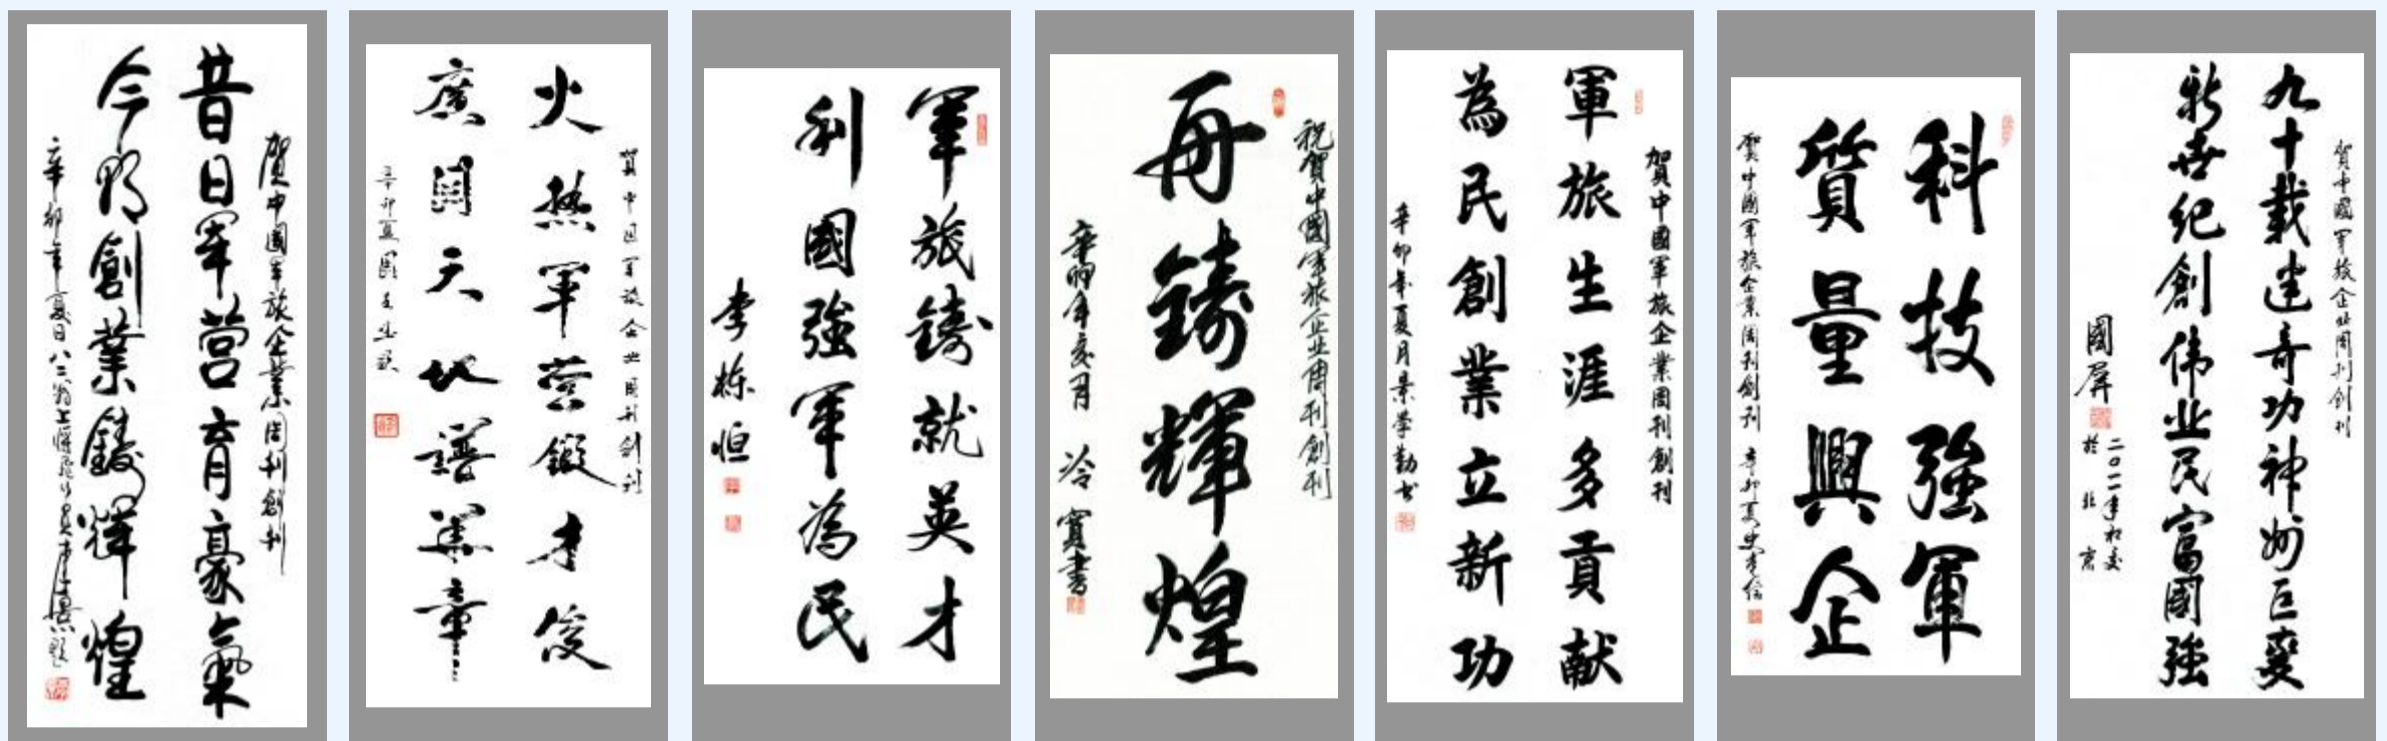 賀中國軍旅企業周刊創刊
昔日軍营育豪氣
今朝創業鑄輝煌
辛卯年夏日八二翁上將
賀中国军旅企业周刊创刊
火热軍营鍛才俊
廣闊天地譜華章
辛卯夏
軍旅鑄就英才
利國強軍為民
李栋恒
祝賀中國軍旅企业周刊創刊
再鑄輝煌
辛卯年夏月 冷寛書
賀中國軍旅企業周刊創刊
軍旅生涯多貢献
為民創業立新功
辛卯年夏月景学勤书
科技強軍
質量興企
賀中國軍旅企業周刊創刊 辛卯夏
賀中國军旅企业周刊创刊
九十載建奇功神州巨变
新世纪創伟业民富國強
國屏
二〇一一年初夏
於北京